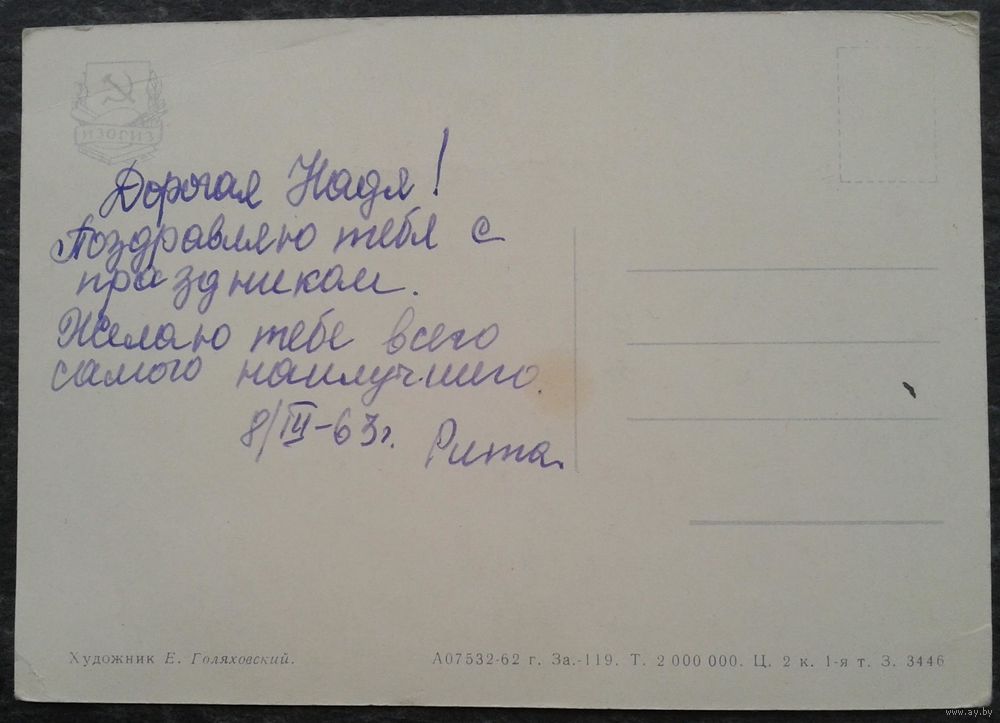 ИЗОГИЗ
Дорогая Надя!
Поздравляю тебя с
праздником.
Желаю тебе всего
самого наилучшего.
8/III-63г. Рита.
Художник Е. Голяховский.
А07532-62 г. За.-119. Т. 2 000 000. Ц. 2 к. 1-я т. З. 3446
www.ay.by